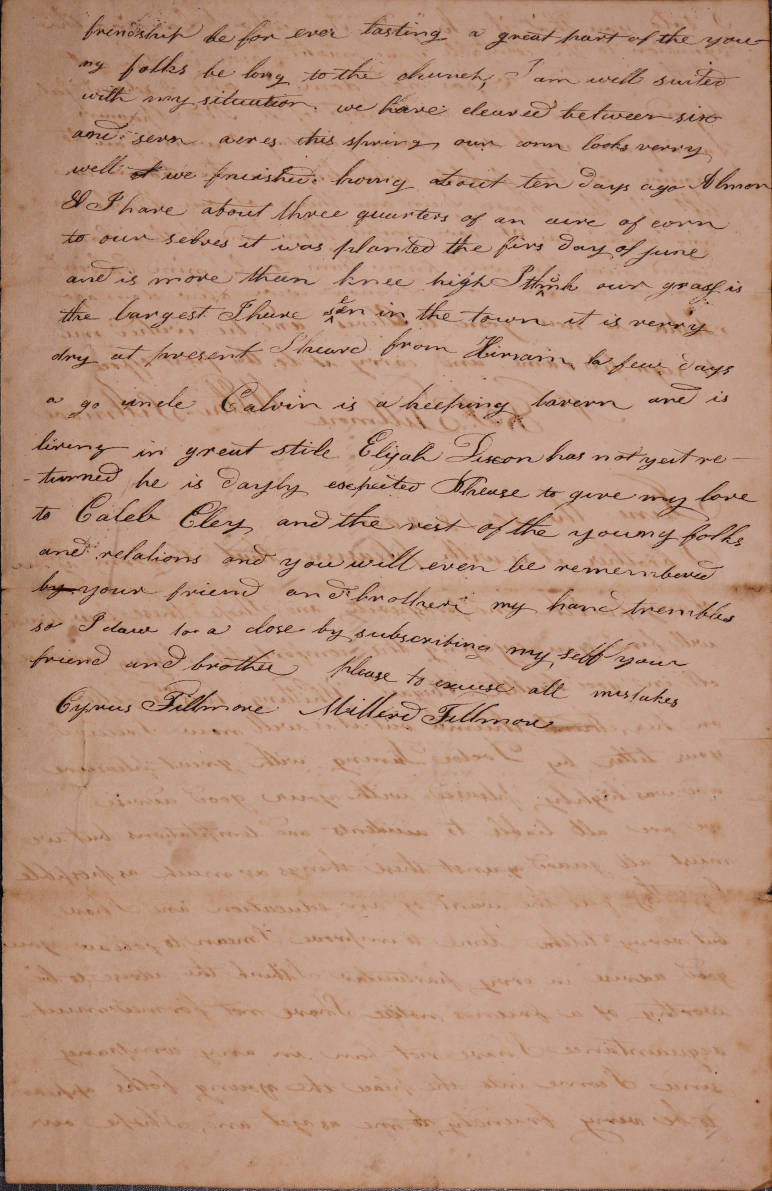 friendship be for ever lasting a great part of the you-
ng folks be long to the church, I am well suited
with my situation. we have cleared between six
and sevn acres this spring our corn looks verry
well we finished hoing about ten days ago Almon
& I have about three quarters of an acre of corn
to our selves it was planted the firs day of june
and is more than knee high I think our grass is
the largest I have seen in the town it is verry
dry at present I heard from Hiriam a few days
a go uncle Calvin is a keeping tavern and is
living in great stile Elijah Dixon has not yeit re-
-turned he is dayly exspected Please to give my love
to Caleb Cley and the rest of the young folks
and relations and you will even be remembered
by your friend and brother my hand trembles
so I daw to a close by subscribing my self your
friend and brother please to excuse all mistakes
Cyrus Fillmore Millerd Fillmore